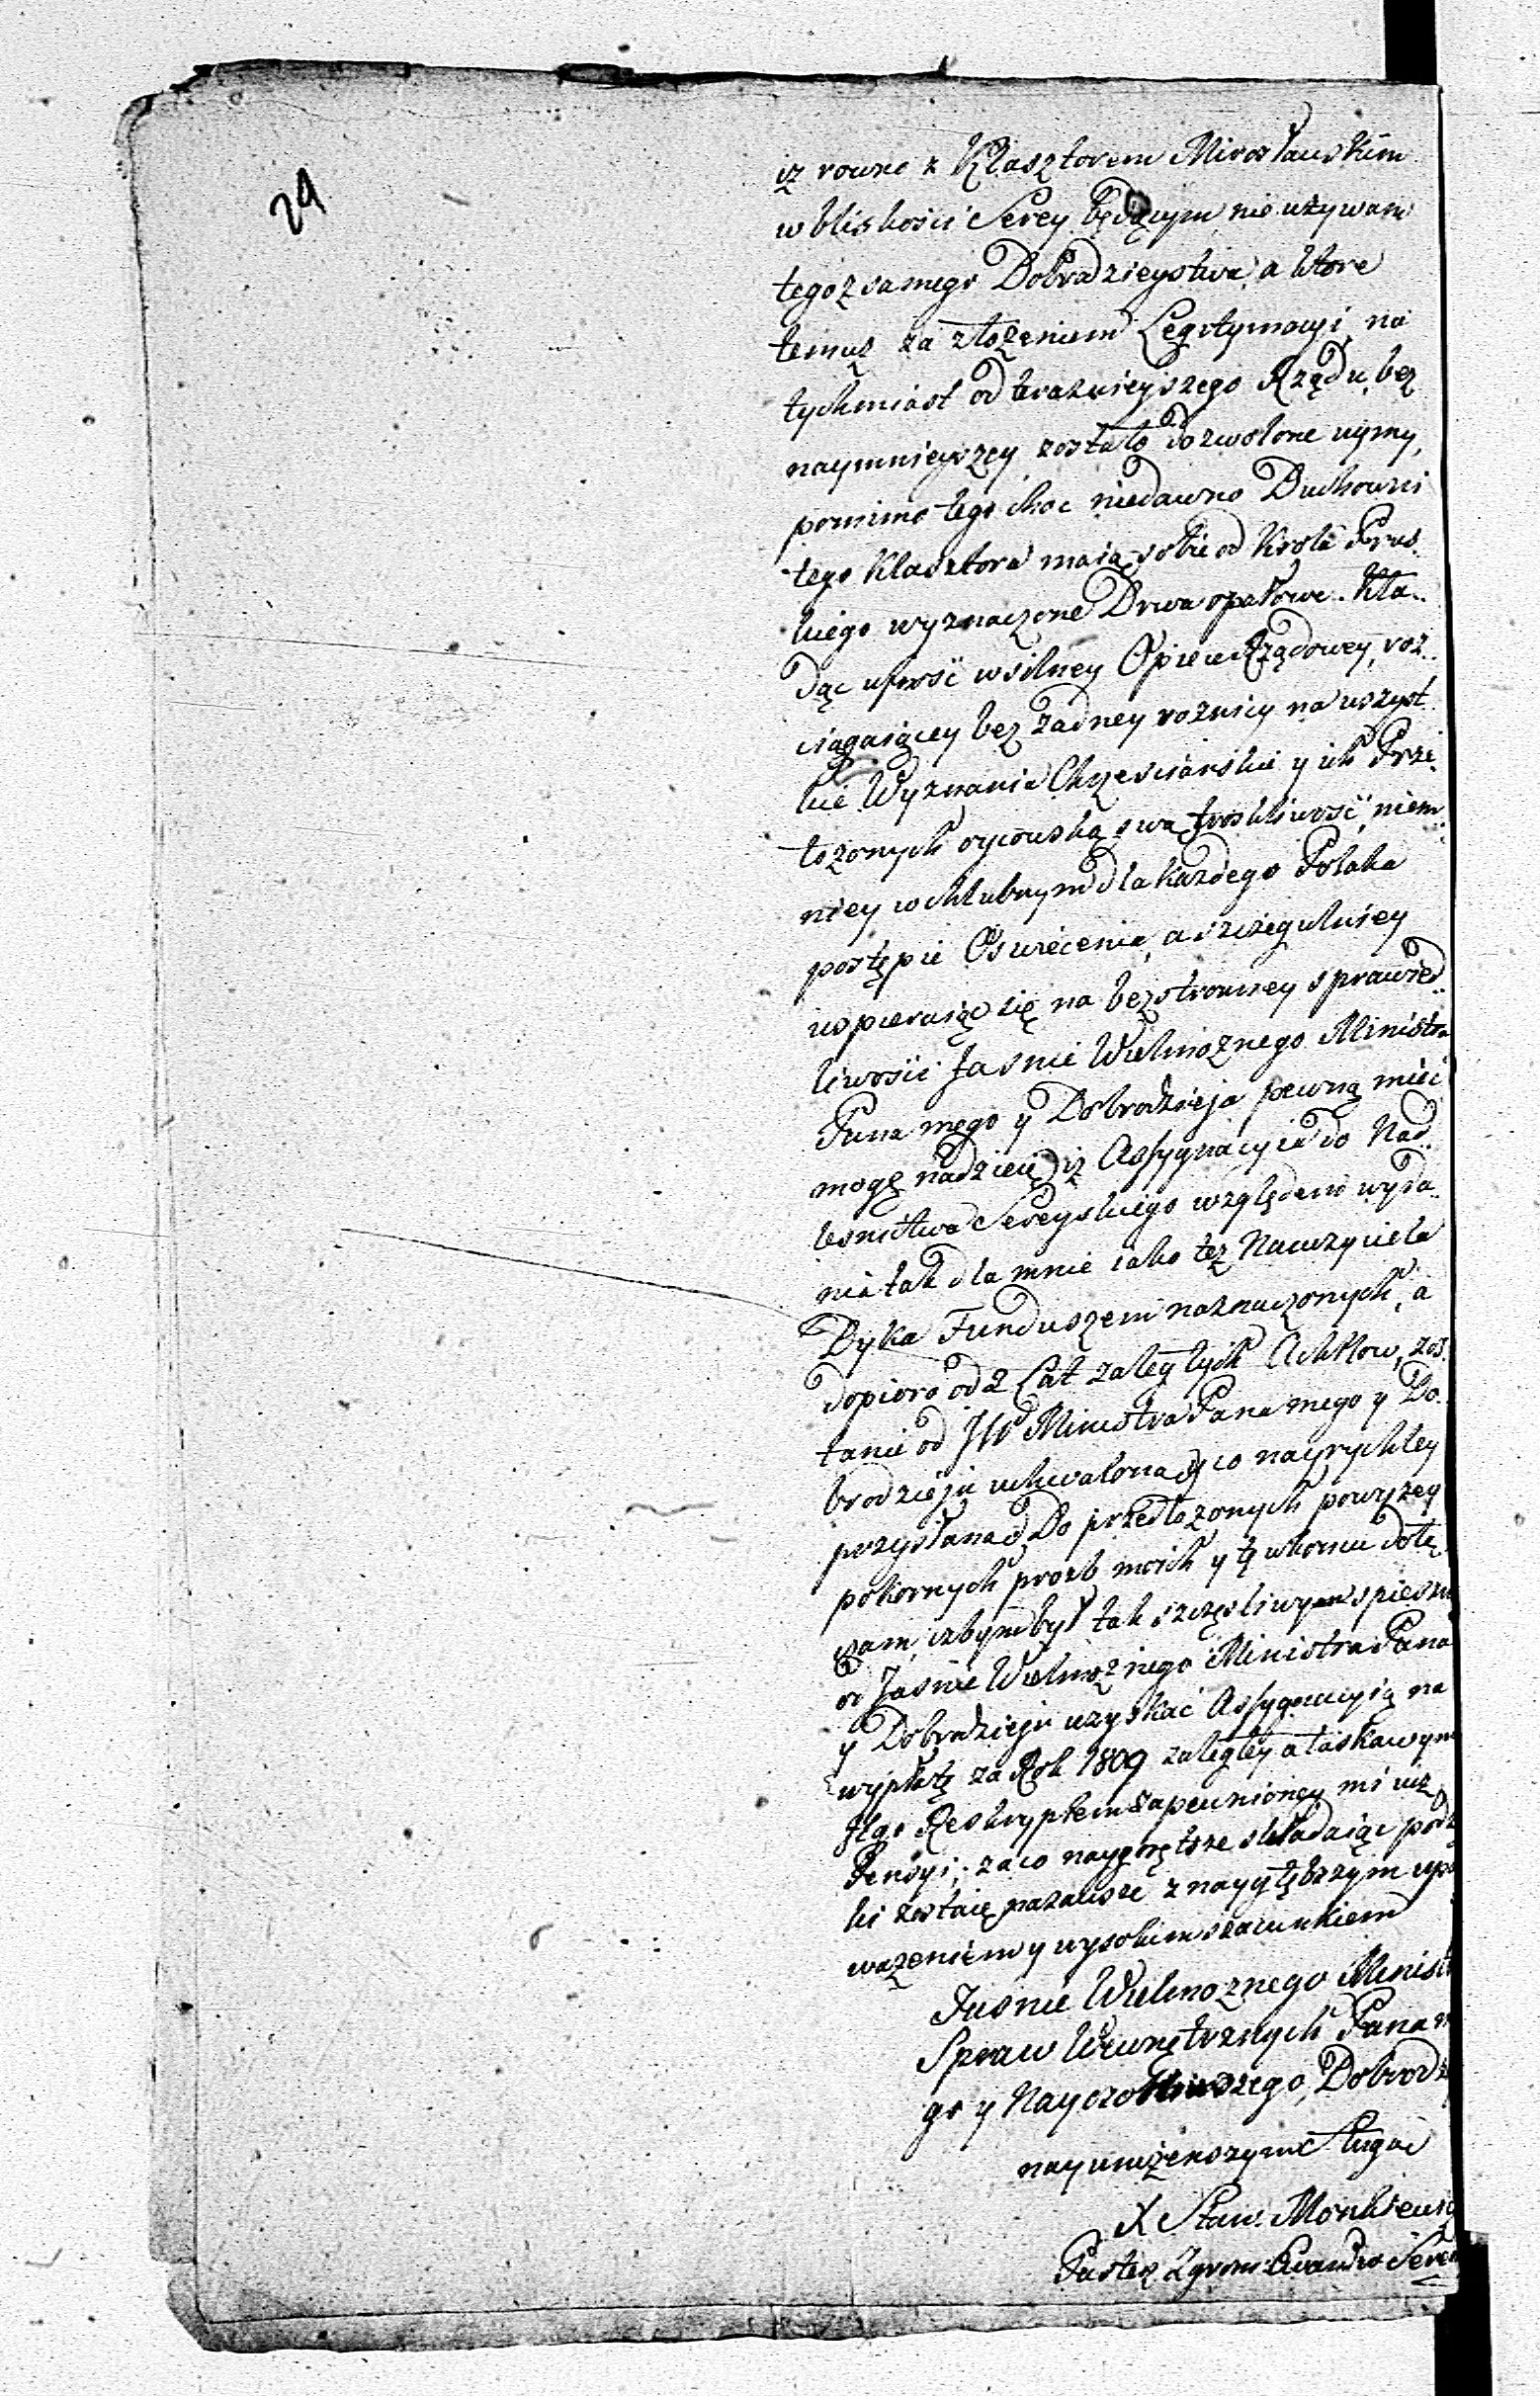 29
iz rowno z Klasztorem Mirosławskim
w bliskości Serey będącym nie używam
tegoz samego Dobrodzieystwa, a ktore
temuz za złożeniem Legitymacyi, na
tychmiast od teraznieyszego Rządu, bez
naymnieyszey zostało dozwolone uymy,
pomimo tego choc niedawno Duchowni
tego Klasztora maią sobie od Krola Prus.
kiego wyznaczone Drwa opałowe. Kła..
dąc ufność w silney Opiece Rządowey, roz..
ciągaiącey bez żadney roznicy na wszyst
kie Wyznania Chrześcianskie y ich Prze.
łożonych oycowską swą troskliwość, niem.
niey w chlubnym dla każdego Polaka
postępie Oswiecenia, a szczegulniey
wspieraiąc się na bezstronney sprawied..
liwości Jasnie Wielmoznego Ministra
Pana mego y Dobrodzieja pewną mieć
mogę nadzieię, iż Assygnacyia do Nad.
lesnictwa Sereyskiego względem wyda..
nia tak dla mnie iako też Nauczyciela
Dyka Funduszem naznaczonych, a
dopiero od 2 Lat zaległych Achtlow, zos.
tanie od JW Ministra Pana mego y Do..
brodzieja uchwalona y co nayrychley
przysłana. Do przedłożonych powyżey
pokornych prozb moich y tę
bym był tak szczęśliwym spieszn
od Jasnie Wielmożnego Ministra Pana
y Dobrodzieja uzyskać Assygnacyią na
wypłatę za Rok 1809 zaległey a łaskawym
Jego Reskryptem zapewnioney mi iuż
Pensyi; za co naygorętsze składaiąc podz
ki zostaię nazawsze z naygłębszym upo
ważeniem y wysokim szacunkiem
Jasnie Wielmoznego Minist
Spraw Wewnętrznych Pana m
go y Nayczcliwszego, Dobrodz
nayunizenszym Sługą
X Staw. Monkiewic
Pasterz Zgrom: Ewan Serey